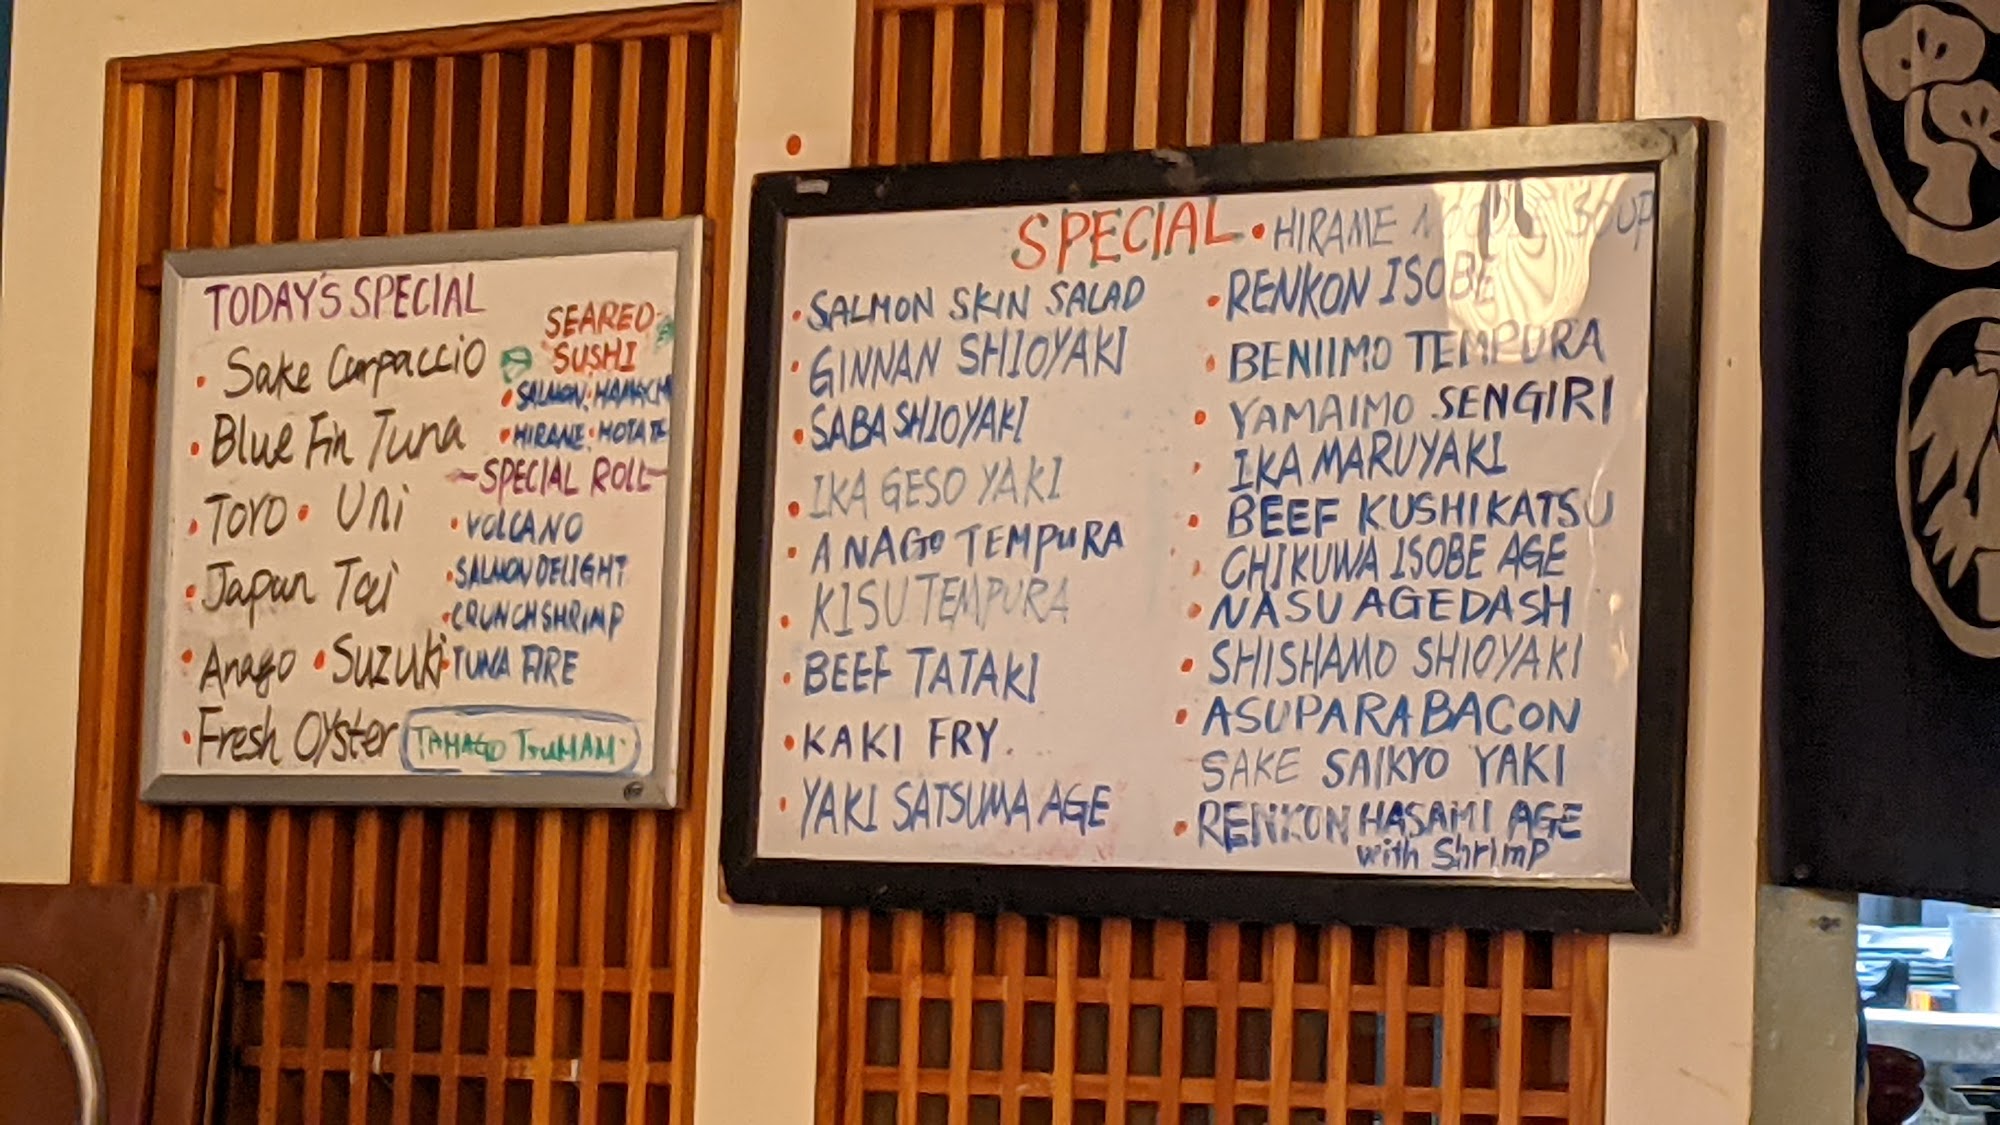 TODAY'S SPECIAL
• Sake Carpaccio
• Blue Fin Tuna
• Toro • Uni
• Japan Tai
• Anago • SUZUKI
• Fresh Oyster
SEARED
SUSHI
• SALMON • HAMACHI
• HIRAME • HOTATE
~SPECIAL ROLL~
• VOLCANO
• SALMON DELIGHT
• CRUNCH SHRIMP
• TUNA FIRE
TAMAGO TSUMAMI
SPECIAL
• SALMON SKIN SALAD
• GINNAN SHIOYAKI
• SABA SHIOYAKI
• IKA GESO YAKI
• ANAGO TEMPURA
• KISU TEMPURA
• BEEF TATAKI
• KAKI FRY.
• YAKI SATSUMA AGE
• HIRAME NOODLE SOUP
• RENKON ISOBE
• BENIIMO TEMPURA
• YAMAIMO SENGIRI
• IKA MARUYAKI
• BEEF KUSHIKATSU
• CHIKUWA ISOBE AGE
• NASU AGEDASH
• SHISHAMO SHIOYAKI
• ASUPARA BACON
SAKE SAIKYO YAKI
• RENKON HASAMI AGE
with Shrimp